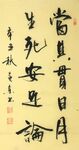 當其貫日月
生死安足論
辛丑秋